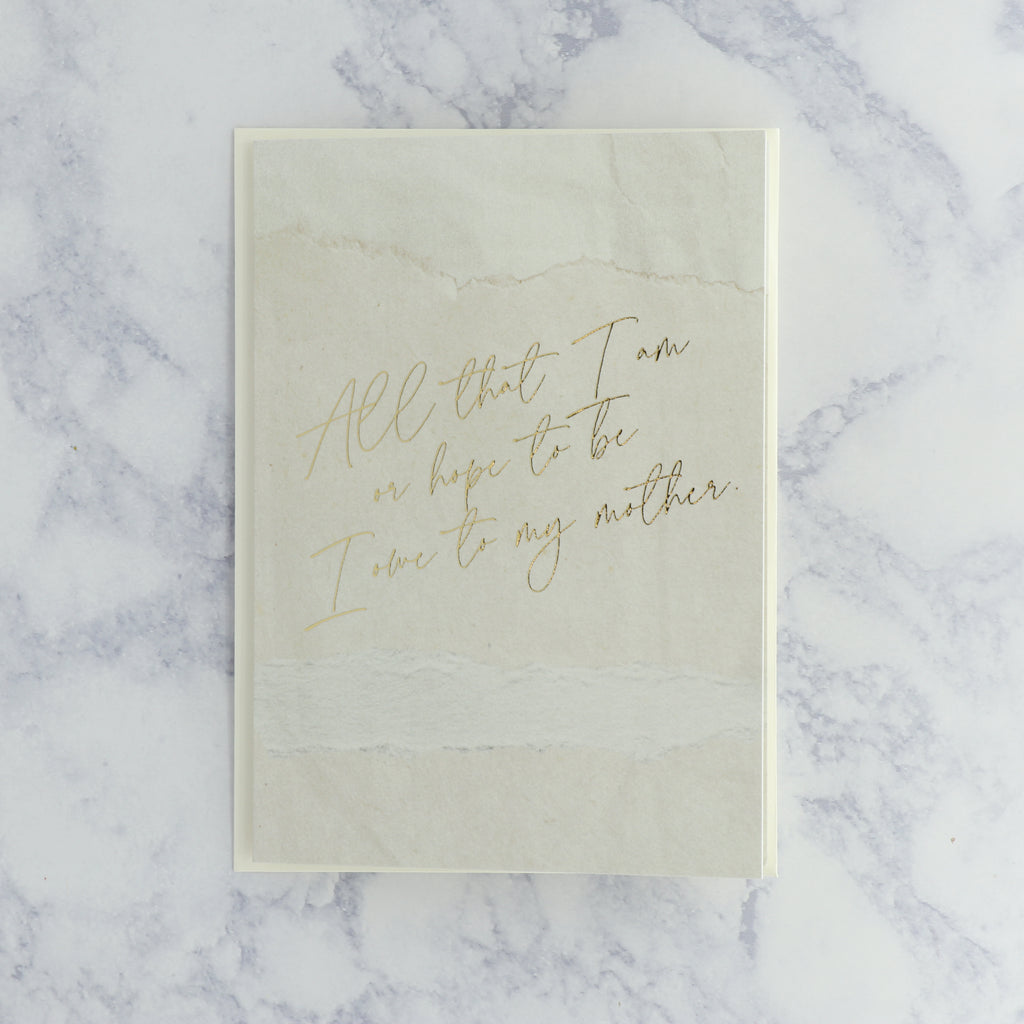 All that I am
or hope to be
I owe to my mother.